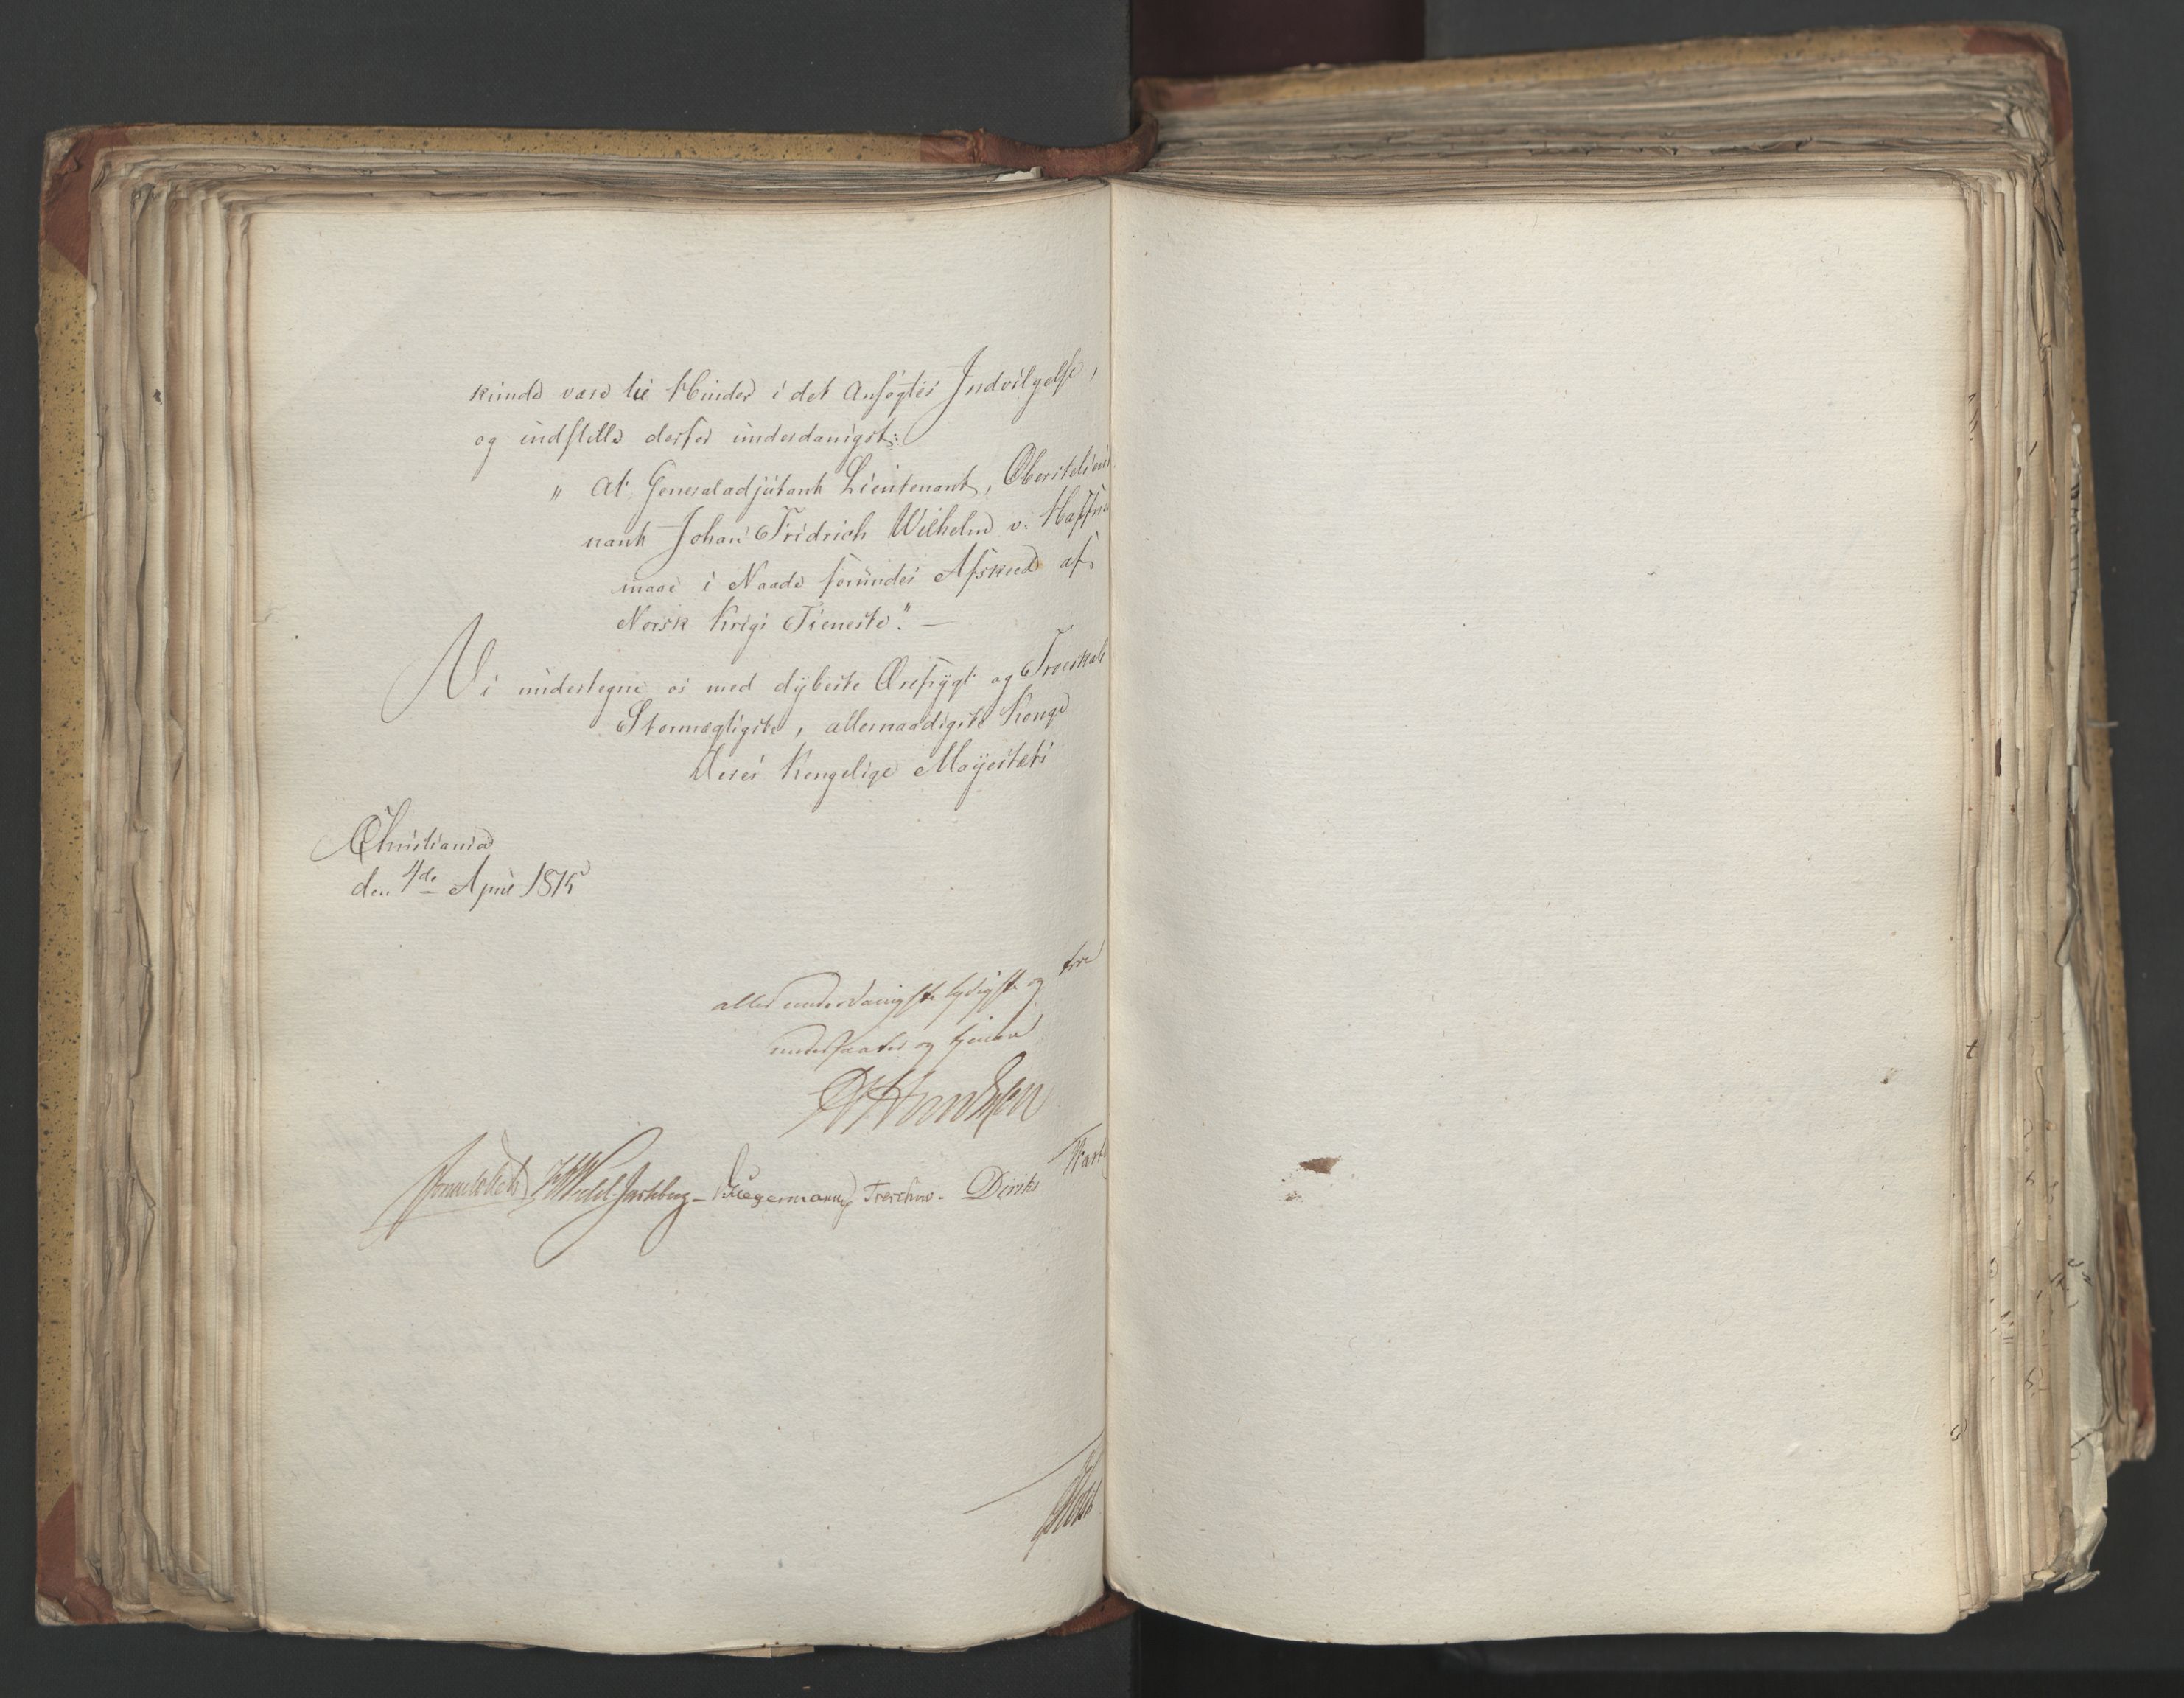 kunde være til Hinder i det Ansøgtes Indvilgelse,
og indstille derfor underdanigst:
" At Generaladjutant Lieutenant, Oberstelieut
nant Johan Fridrich Wilhelm v. Haffne
maae i Naade forundes Afskeed af
Norsk Krigs Tieneste". —
Vi undertegne os med dybeste Ærefrygt og Troeskab
Stormægtigste, allernaadigste Konge
Deres Kongelige Mayestæts
Christiania
den 4de April 1815
allerunderdanigste lydigste og troe
undersaatter og tjenere
Hansteen
Sommerhielm Wedel Jarlsberg - Krieger Treschow - Diriks
Holst